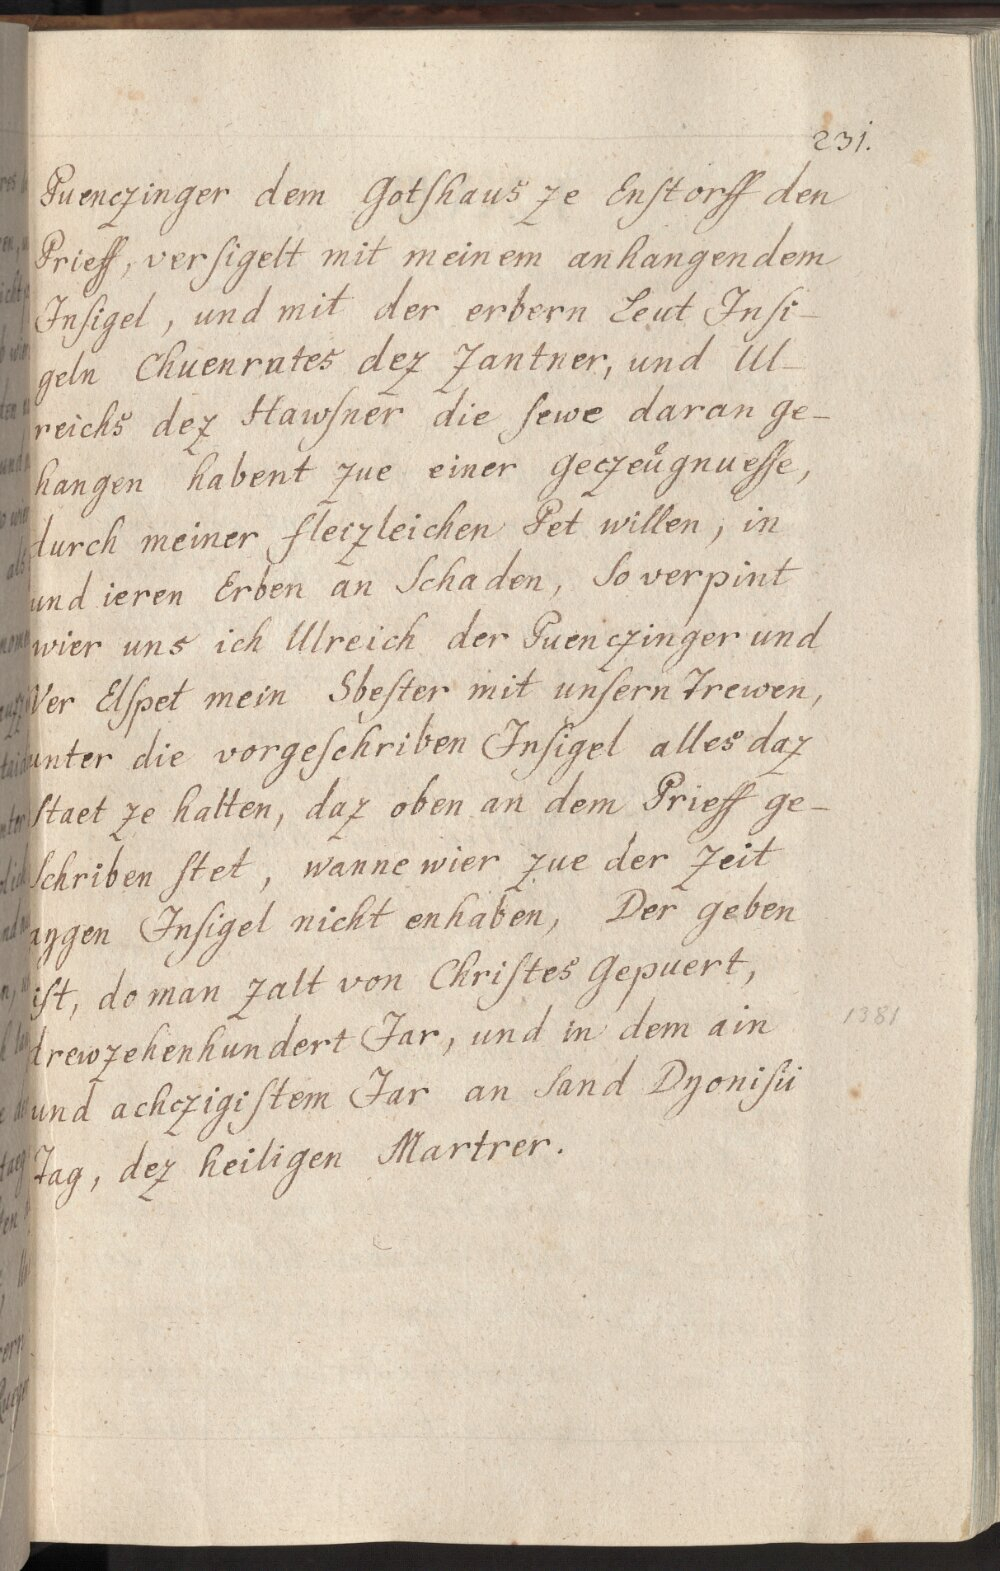 231.
Puenczinger dem Gotshaus ze Enstorff den
Prieff, versigelt mit meinem anhangendem
Insigel, und mit der erbern Leut Insi-
geln Chuenrates dez Zantner, und Ul-
reichs dez Hawsner die sewe daran ge-
hangen habent zue einer geczeügnuesse,
durch meiner fleizleichen Pet willen, in
und ieren Erben an Schaden, So verpint
wier uns ich Ulreich der Puenczinger und
Ver Elspet mein Sbester mit unsern Trewen,
unter die vorgeschriben Insigel alles daz
staet ze halten, daz oben an dem Prieff ge-
schriben stet, wanne wier zue der Zeit
aygen Insigel nicht enhaben, Der geben
ist, do man zalt von Christes Gepuert,
drewzehenhundert Jar, und in dem ain
1381
und achczigistem Jar an Sand Dyonisii
Tag, dez heiligen Martrer.